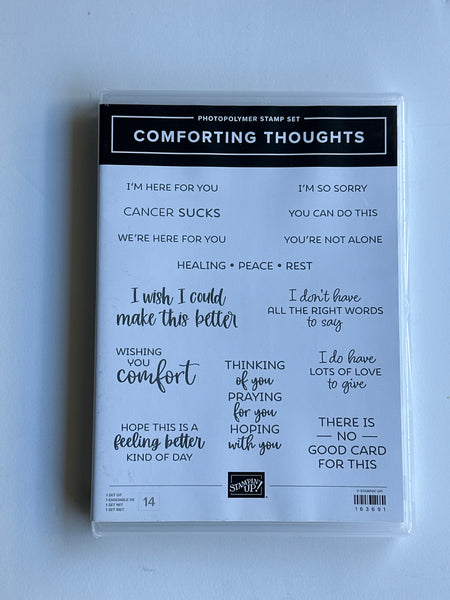 PHOTOPOLYMER STAMP SET
COMFORTING THOUGHTS
I'M HERE FOR YOU
I'M SO SORRY
CANCER SUCKS
YOU CAN DO THIS
WE'RE HERE FOR YOU
YOU'RE NOT ALONE
HEALING • PEACE • REST
I wish I could
make this better
I don't have
ALL THE RIGHT WORDS
to say
WISHING
YOU
comfort
THINKING
of you
PRAYING
for you
HOPING
with you
I do have
LOTS OF LOVE
to give
HOPE THIS IS A
feeling better
KIND OF DAY
THERE IS
— NO —
GOOD CARD
FOR THIS
1 SET OF
1 ENSEMBLE DE
1 SET MIT
1 SET MET
14
STAMPIN' UP!
© STAMPIN' UP!
163691